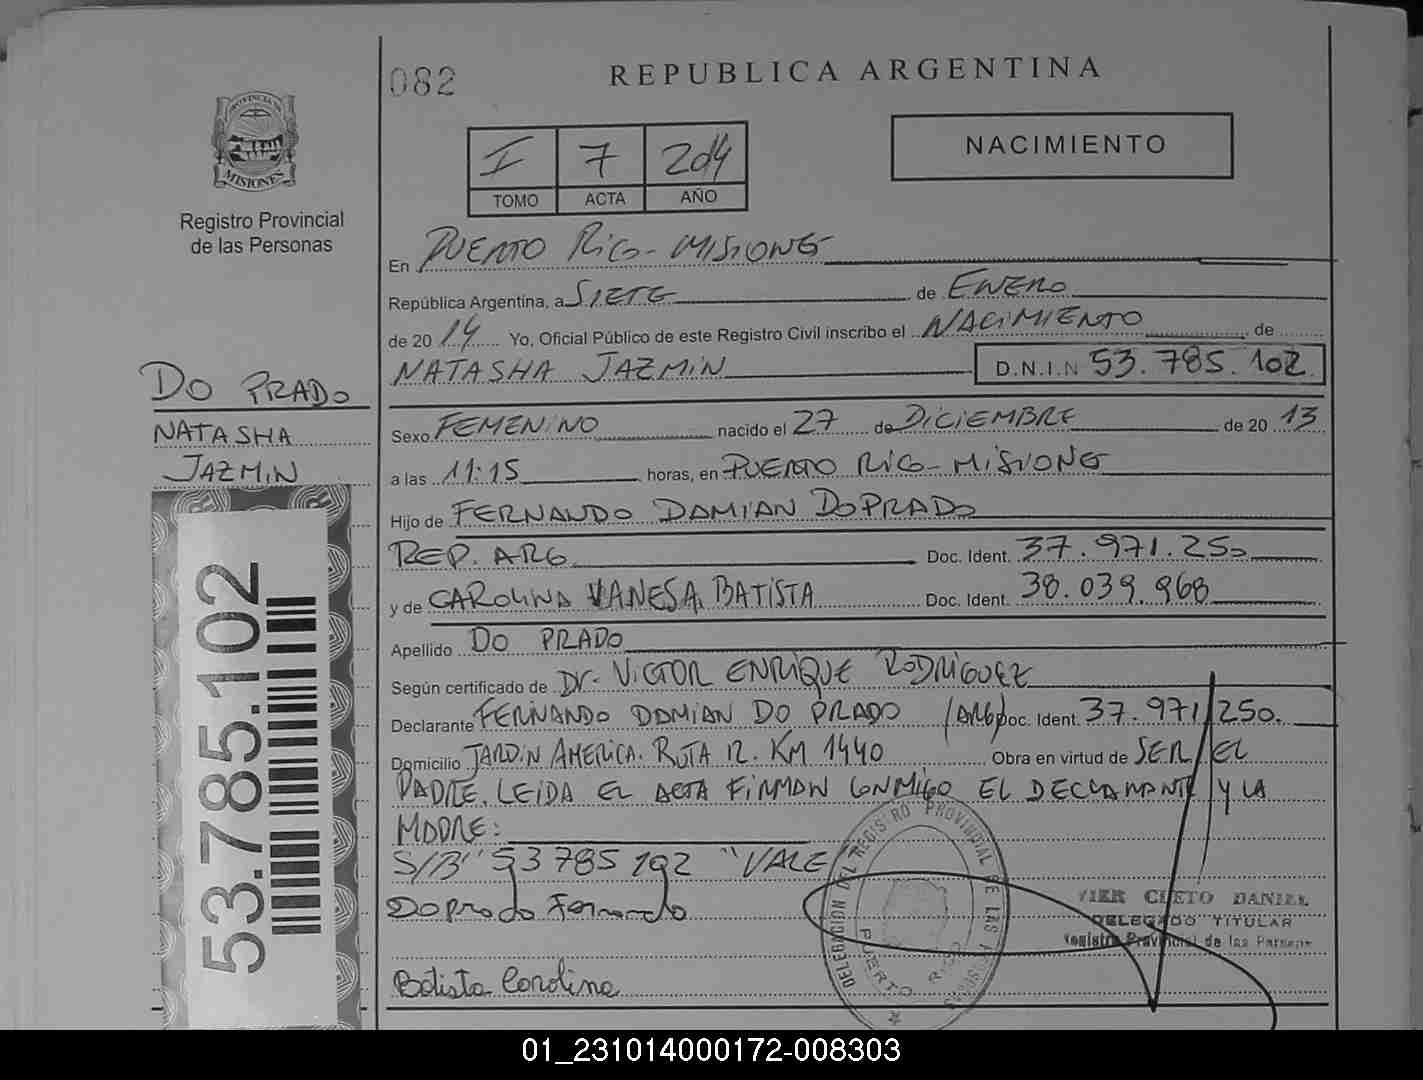 082
REPUBLICA ARGENTINA
PROVINCIA DE
MISIONES
Registro Provincial
de las Personas
I 7 2014
TOMO ACTA AÑO
NACIMIENTO
En PUERTO RICO - MISIONES
República Argentina, a SIETE de ENERO
de 20 14 Yo, Oficial Público de este Registro Civil inscribo el NACIMIENTO de
NATASHA JAZMIN D.N.I.N 53.785.102
DO PRADO
NATASHA
JAZMIN
53.785.102
Sexo FEMENINO nacido el 27 de DICIEMBRE de 20 13
a las 11:15 horas, en PUERTO RICO - MISIONES
Hijo de FERNANDO DAMIAN DOPRADO
REP. ARG. Doc. Ident. 37.971.250
y de CAROLINA VANESA BATISTA Doc. Ident. 38.039.968
Apellido DO PRADO
Según certificado de Dr. VICTOR ENRIQUE RODRIGUEZ
Declarante FERNANDO DAMIAN DO PRADO (ARG) Doc. Ident. 37.971.250.
Domicilio JARDIN AMERICA. RUTA 12. KM 1440 Obra en virtud de SER EL
PADRE. LEIDA EL ACTA FIRMAN CONMIGO EL DECLARANTE Y LA
MADRE:
S/B " 53 785 102 " VALE
Doprado Fernando
Batista Carolina
DELEGACION DEL REGISTRO PROVINCIAL DE LAS PERSONAS
PUERTO RICO
CUETO DANIEL
DELEGADO TITULAR
Registro Provincial de las Personas
01_231014000172-008303